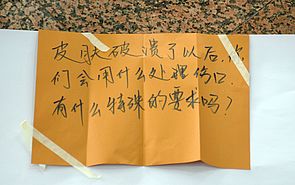 皮肤破溃了以后,你
们会用什么处理伤口.
有什么特殊的要求吗?